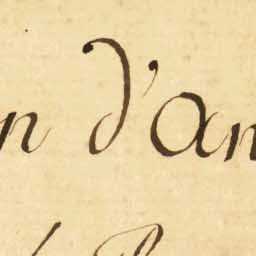 n d'an